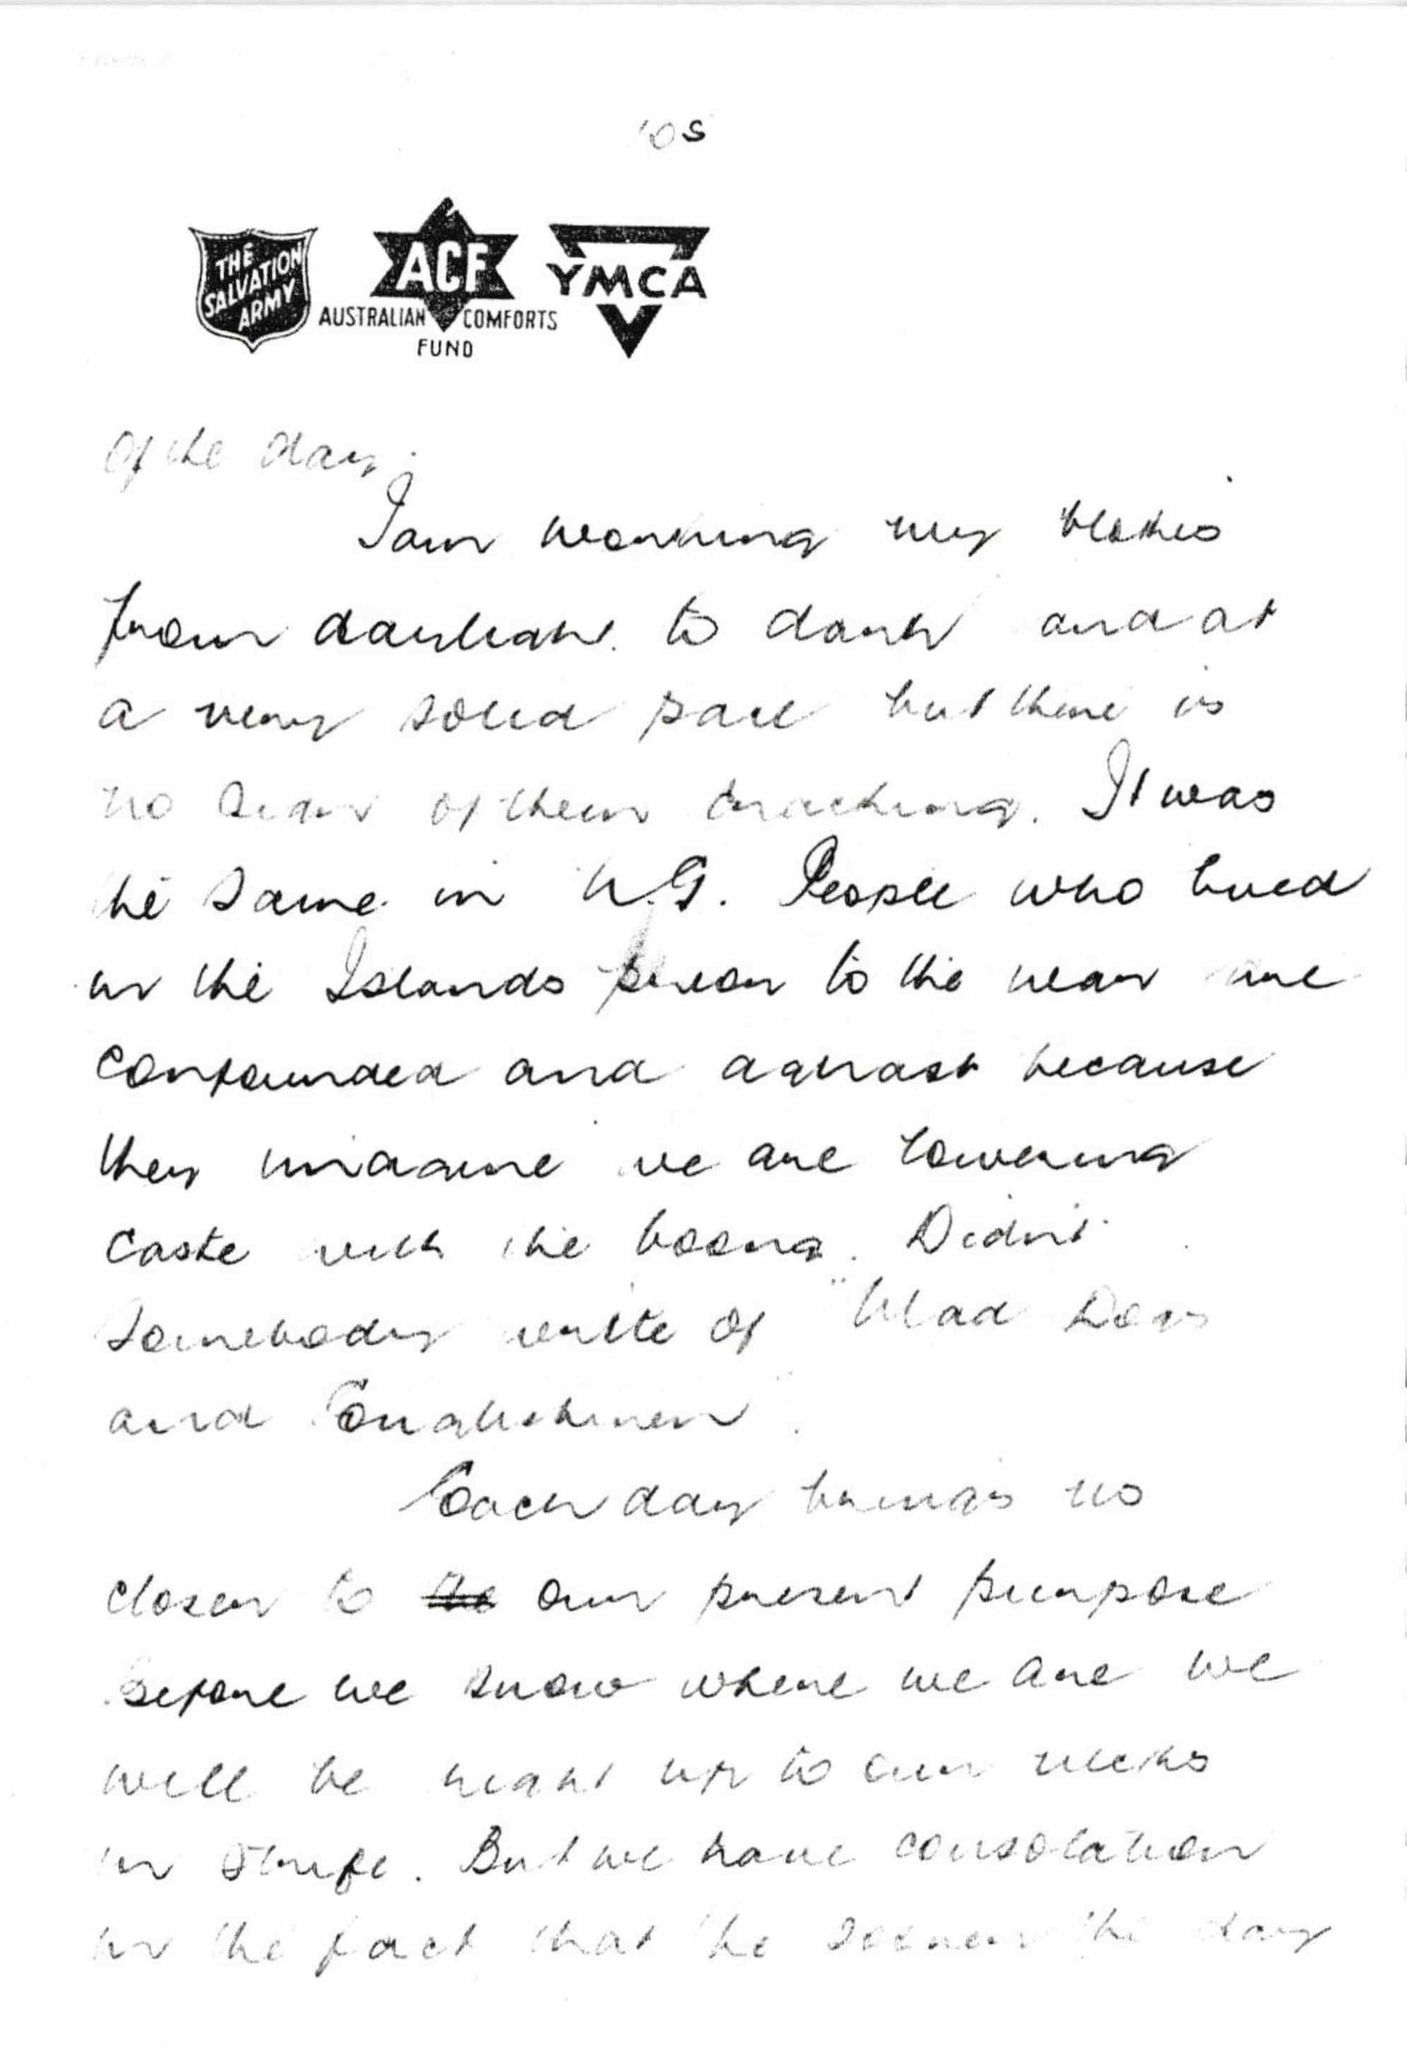 THE
SALVATION
ARMY
ACF
AUSTRALIAN COMFORTS
FUND
YMCA
of the day.
I am working my blokes
from daylight to dark and at
a very solid pace but there is
no sign of them cracking. It was
the same in N.G. People who lived
in the Islands prior to the war are
confounded and aghast because
they imagine we are lowering
caste with the boong. Didn't
somebody write of "Mad Dogs
and Englishmen".
Each day brings us
closer to the our present purpose
Before we know where we are we
will be right up to our necks
in strife. But we have consolation
in the fact that the sooner the day